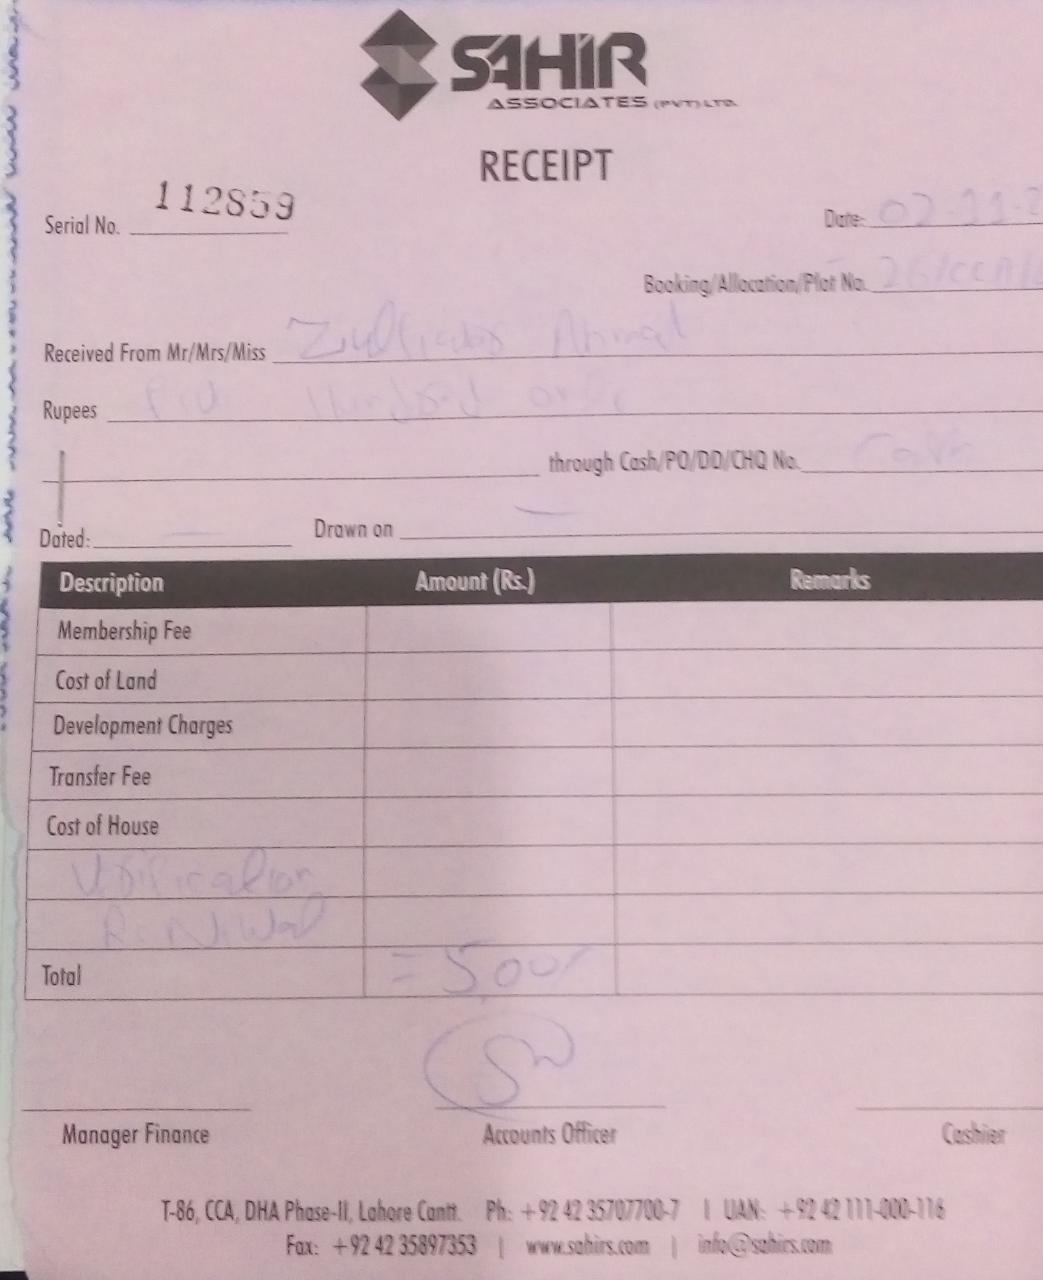 SAHIR
ASSOCIATES (PVT) LTD.
RECEIPT
Serial No. 112859
Date: 02-11-2
Booking/Allocation/Plot No. 26/CCA/
Received From Mr/Mrs/Miss Zulfiqar Ahmad
Rupees Hundred only
through Cash/PO/DD/CHQ No. Cash
Dated: — Drawn on —
Description Amount (Rs.) Remarks
Membership Fee
Cost of Land
Development Charges
Transfer Fee
Cost of House
Verification
Total = 500/
Manager Finance Accounts Officer Cashier
T-86, CCA, DHA Phase-II, Lahore Cantt. Ph: +92 42 35707700-7 | UAN: +92 42 111-000-116
Fax: +92 42 35897353 | www.sahirs.com | info@sahirs.com